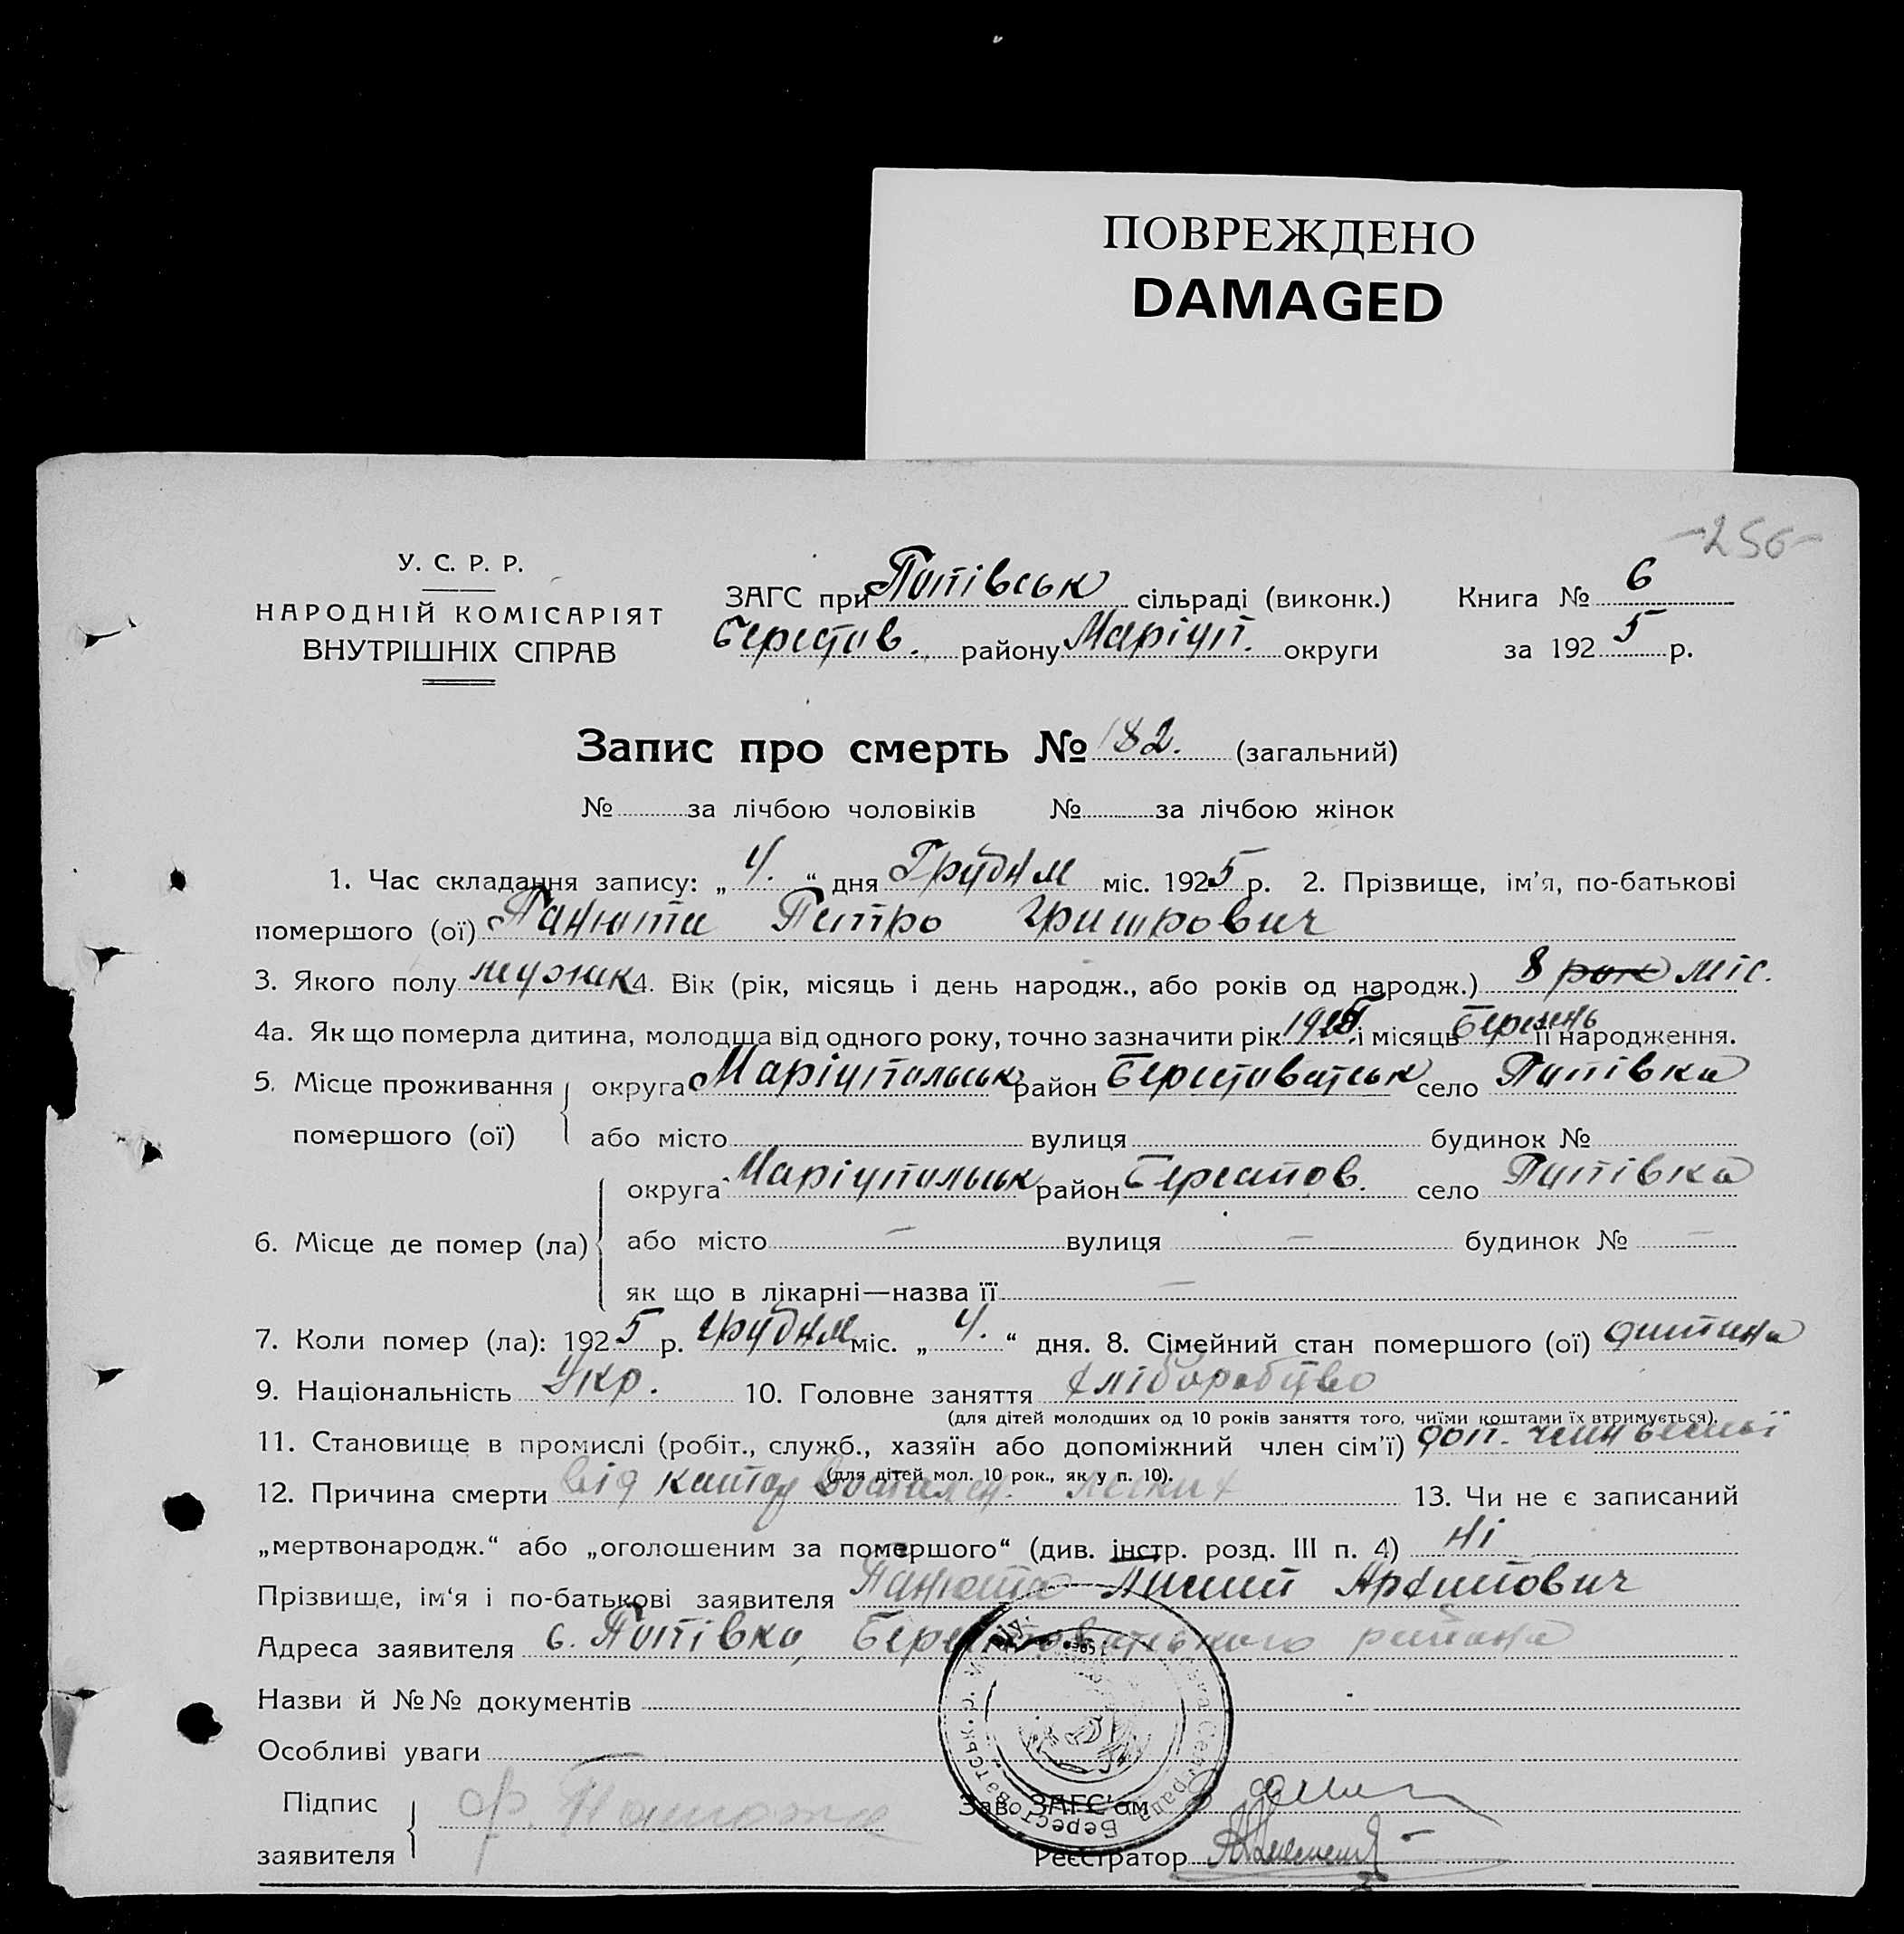 ПОВРЕЖДЕНО
DAMAGED
-256-
У. С. Р. Р.
НАРОДНІЙ КОМІСАРІЯТ
ВНУТРІШНІХ СПРАВ
ЗАГС при Попівськ сільраді (виконк.) Книга № 6
Берестов. району Маріуп. округи за 1925 р.
Запис про смерть № 182. (загальний)
№ за лічбою чоловіків № за лічбою жінок
1. Час складання запису: „4.“ дня Грудня міс. 1925 р. 2. Прізвище, ім'я, по-батькові
помершого (ої) Панюта Петро Григорович
3. Якого полу мужик 4. Вік (рік, місяць і день народж., або років од народж.) 8 роке міс.
4а. Як що померла дитина, молодша від одного року, точно зазначити рік 1925 і місяць Березень її народження.
5. Місце проживання округа Маріупольськ район Берестоватськ село Попівка
помершого (ої) або місто вулиця будинок №
округа Маріупольськ район Берестов. село Попівка
6. Місце де помер (ла) або місто — вулиця — будинок № —
як що в лікарні—назва її —
7. Коли помер (ла): 1925 р. грудня міс. „4.“ дня. 8. Сімейний стан помершого (ої) дитина
9. Національність Укр. 10. Головне заняття хліборобство
(для дітей молодших од 10 років заняття того, чиїми коштами їх втримується).
11. Становище в промислі (робіт., служб., хазяїн або допоміжний член сім'ї) доп. член семьї
(для дітей мол. 10 рок., як у п. 10).
12. Причина смерти від легких 13. Чи не є записаний
„мертвонародж.“ або „оголошеним за помершого“ (див. інстр. розд. III п. 4) ні
Прізвище, ім'я і по-батькові заявителя Панюта Пилип Архипович
Адреса заявителя с. Попівка, Берестоватського района
Назви й №№ документів
Особливі уваги
Підпис
заявителя
Зав. ЗАГС'ом
Реєстратор